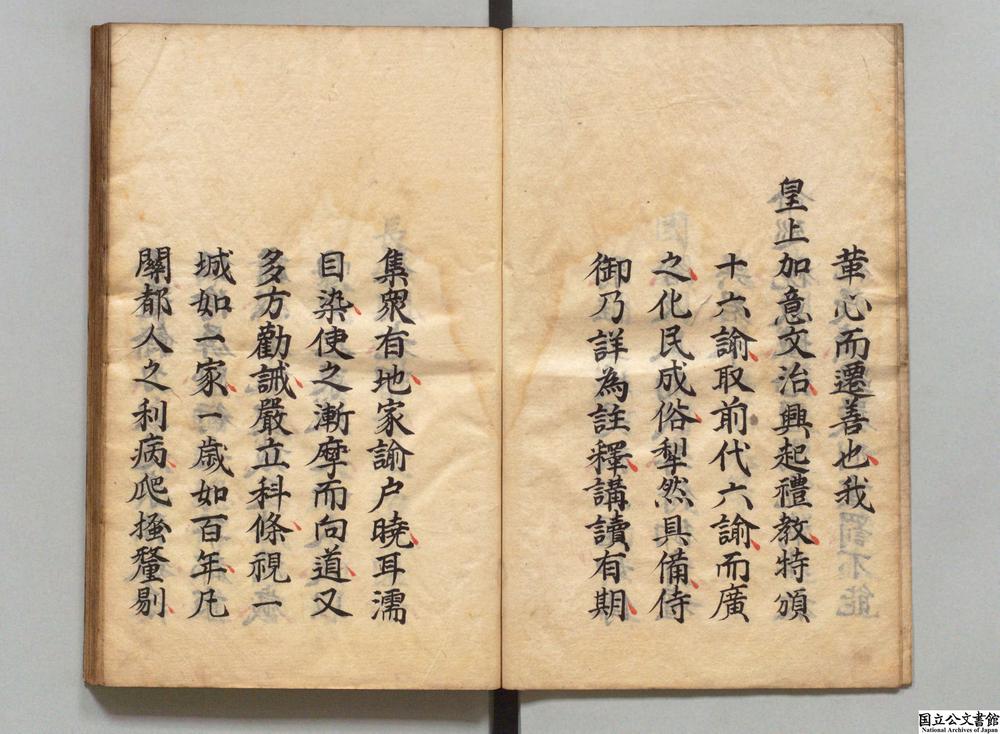 革心而遷善也我
皇上加意文治興起禮教特頒
十六諭取前代六諭而廣
之化民成俗犁然具備侍
御乃詳為註釋講讀有期
集衆有地家諭户曉耳濡
目染使之漸摩而向道又
多方勸誡嚴立科條視一
城如一家一歲如百年凡
關都人之利病爬搔釐剔
国立公文書館
National Archives of Japan